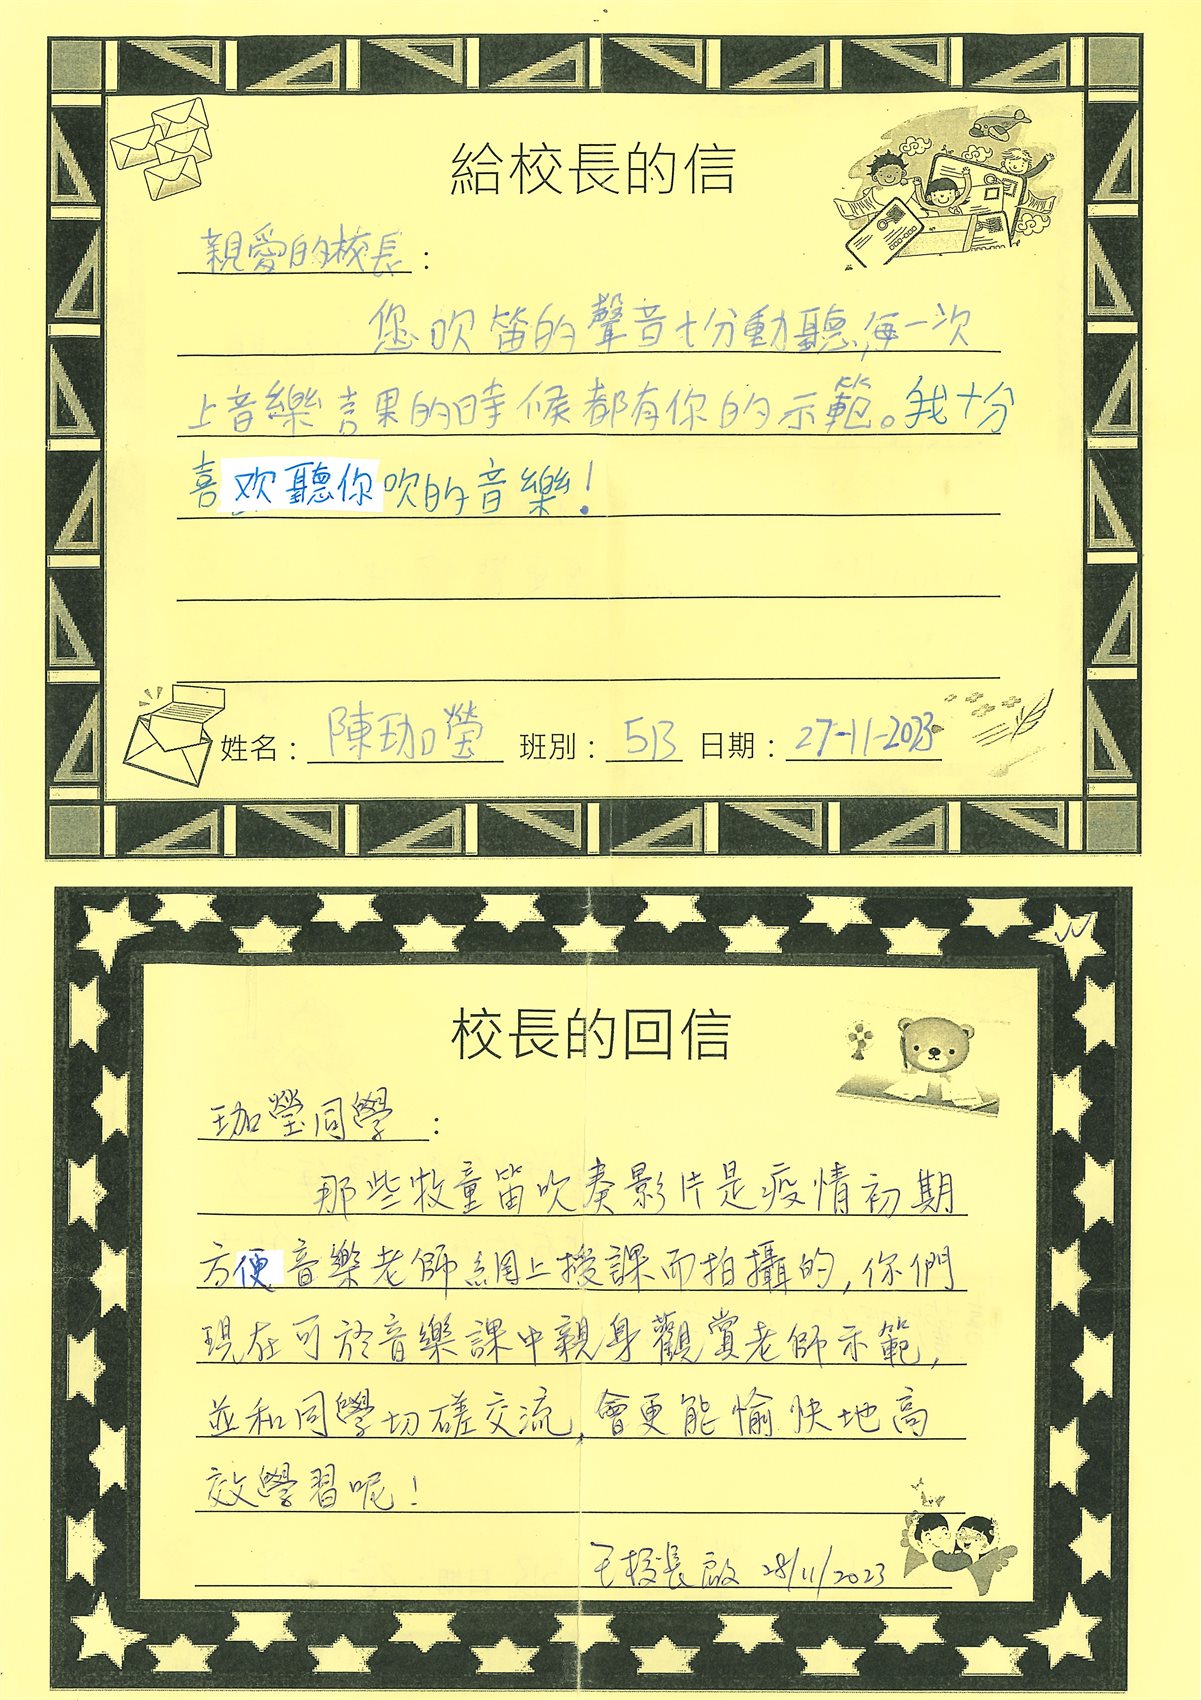 給校長的信
親愛的校長：
您吹笛的聲音十分動聽,每一次
上音樂課的時候都有你的示範。我十分
喜欢聽你吹的音樂！
姓名：陳珈瑩 班別：5B 日期：27-11-2023
校長的回信
珈瑩同學：
那些牧童笛吹奏影片是疫情初期
方便音樂老師網上授課而拍攝的,你們
現在可於音樂課中親身觀賞老師示範,
並和同學切磋交流,會更能愉快地高
效學習呢！
王校長啟 28/11/2023